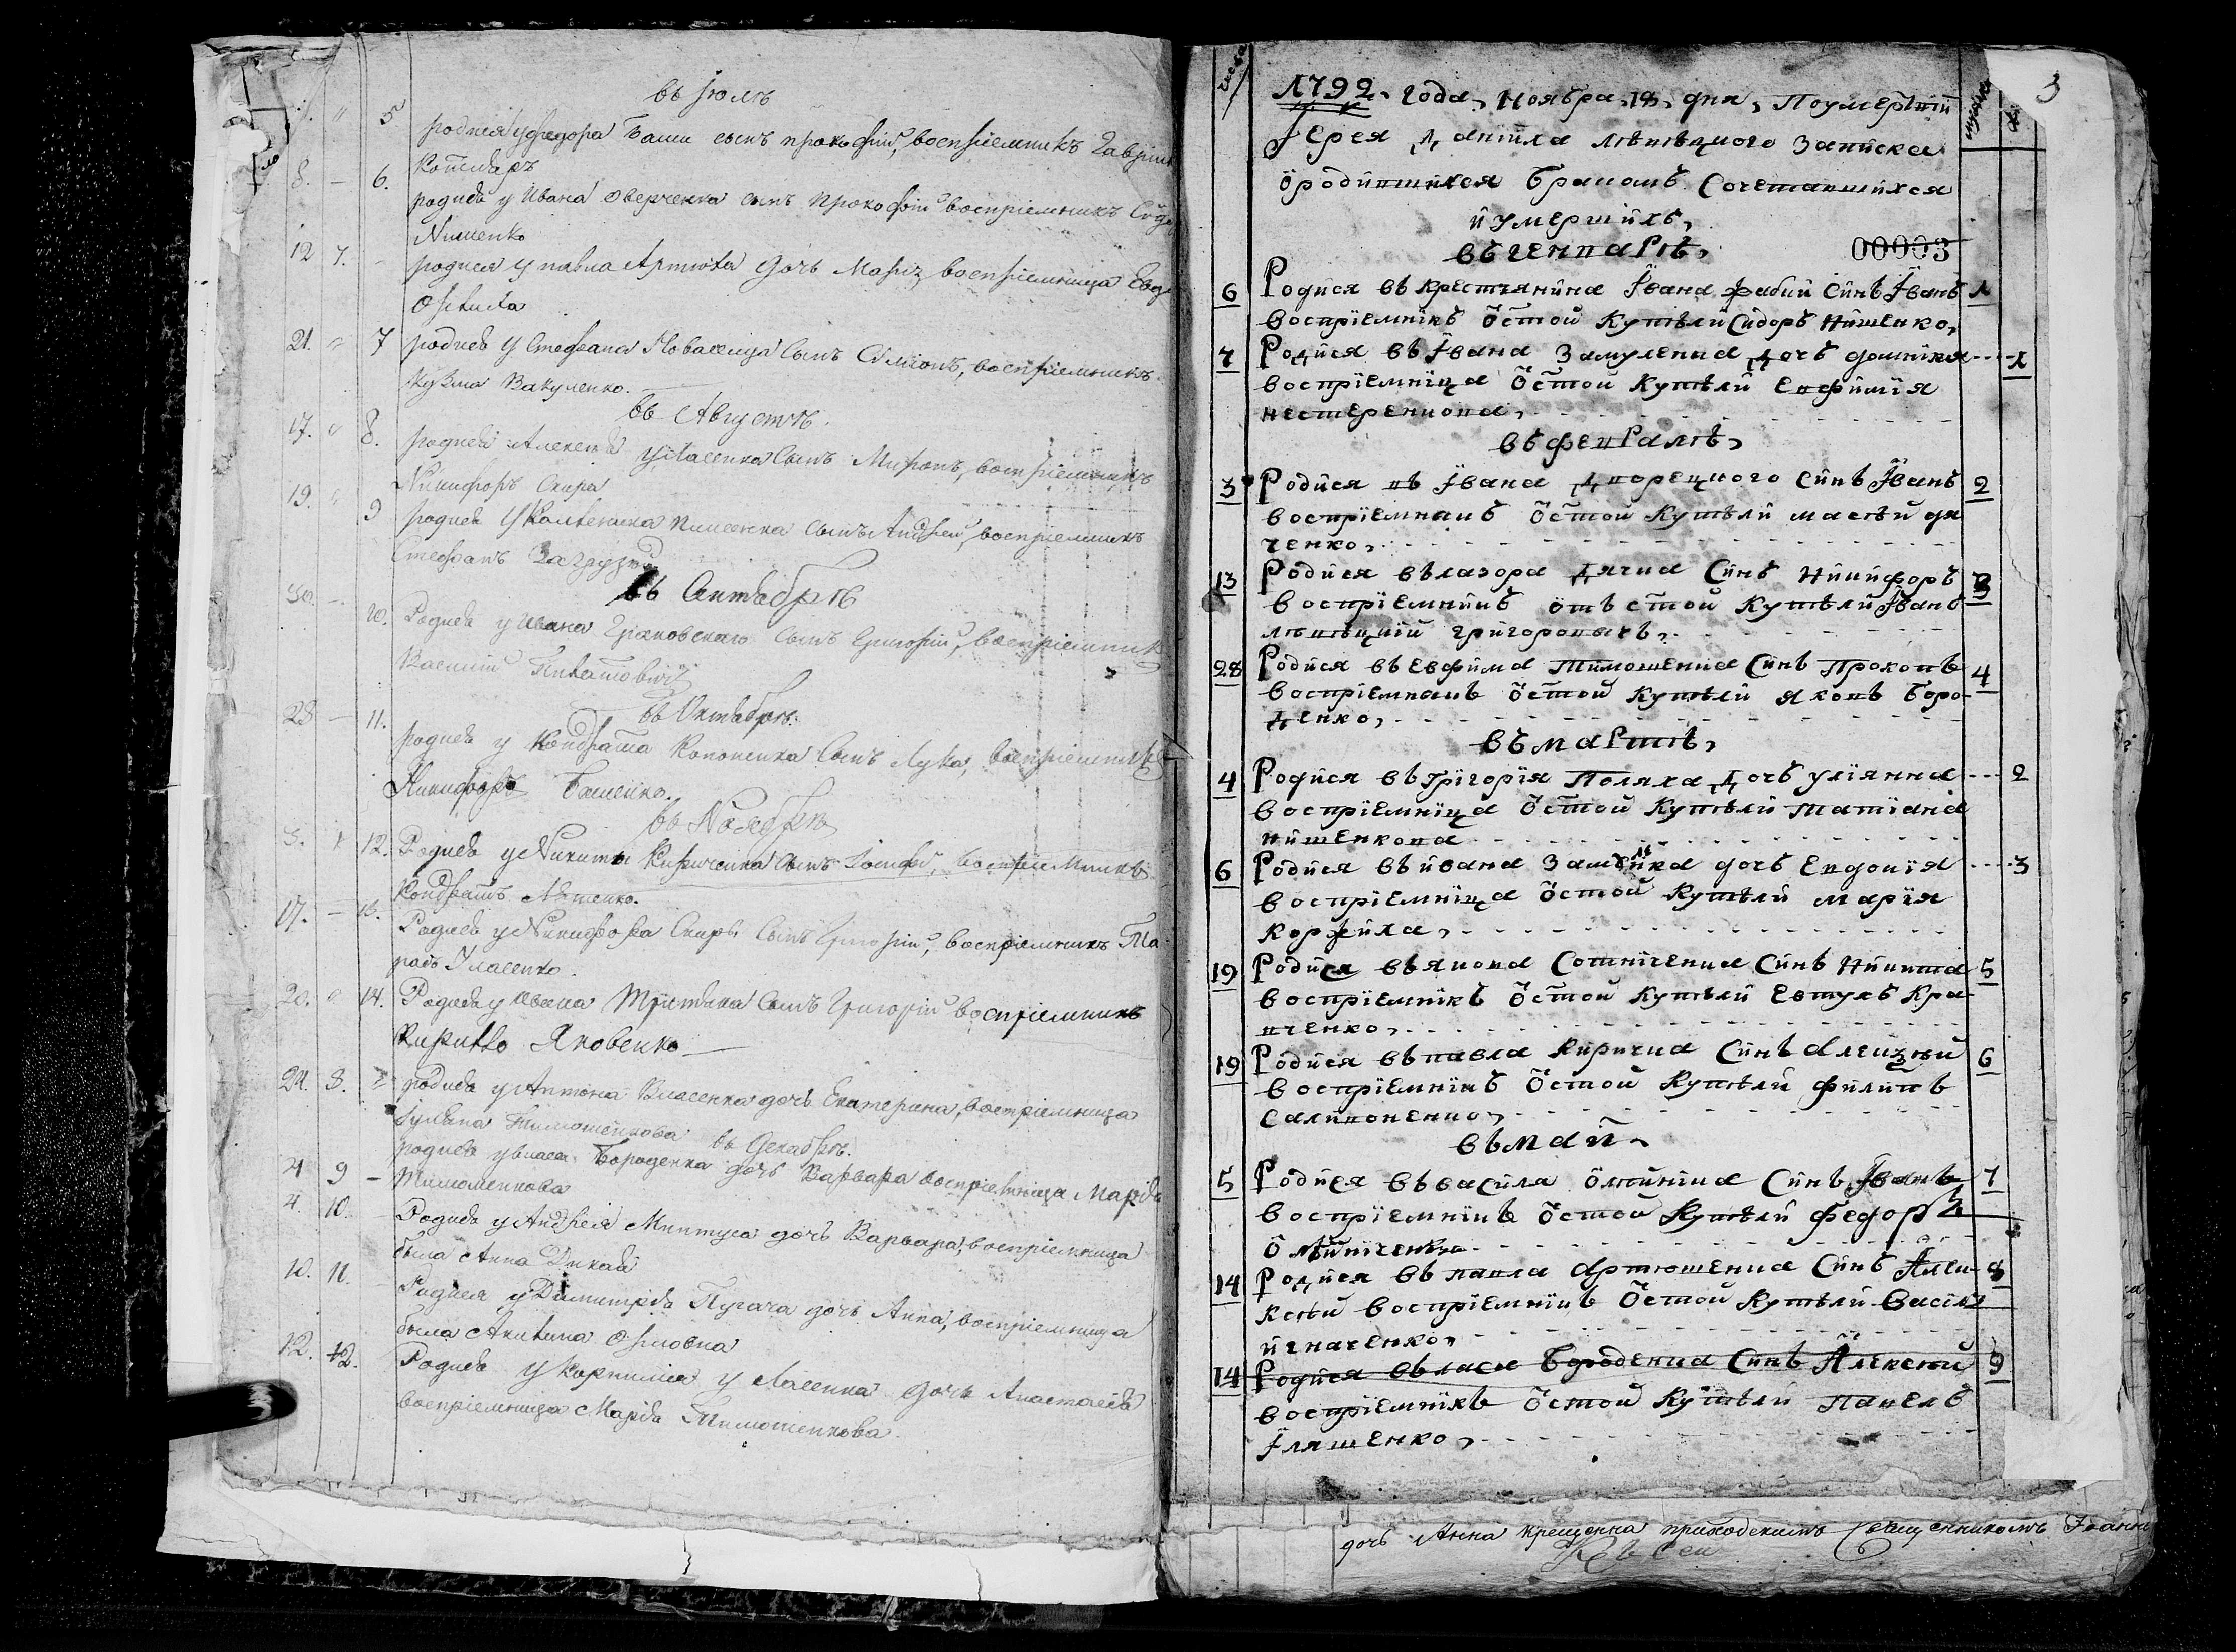 въ Іюлѣ
5 родися у федора Баши сынъ прокофій, воспріемникъ Гавріи
Котляръ
8. — 6. родися у Ивана Оверченка сынъ Прокофій воспріемникъ Сидо
Нишенко
12 7. — родися у павла Артюха дочь Марія воспріемница Евд
21. 7 родися у Стефана Ковалчука сынъ Сѵмеонъ, воспріемникъ
Кузма Вакуленко.
въ Августѣ.
17. 8. родися Алексѣя уласенка сынъ Миронъ, воспріемникъ
Никифоръ Скира
19. 9 родися у сынъ Андрей, воспріемникъ
Стефанъ Загрузн
въ Сентябрѣ
30. — 10. Родися у Ивана Граковскаго сынъ Григорій, воспріемник
Василий
въ Октябрѣ.
23 — 11. родися у Кондрата Кононенка сынъ Лука, воспріемникъ
Никифоръ Башенко.
въ Ноябрѣ
3. 12. Родися у Никиты Кириченка сынъ Іосифъ, воспріемникъ
Кондратъ Ляшенко.
17. — 13. Родися у Никифора Скиры сынъ Григорій, воспріемникъ Та
расъ Уласенко.
20. 14. Родися у Ивана сынъ Григорій воспріемникъ
Кирилло Яковенко —
24. 8. родися у Антона Власенка дочь Екатерина, воспріемница
Іуліана Тимошенкова
въ Декабрѣ.
4 9 — родися у власа Бороденка дочь Варвара воспріемница Марія
Тимошенкова
4. 10. Родися у Андрея дочь Варвара, воспріемница
была Анна Дикая
10. 11. Родися у Димитрія Пугача дочь Анна, воспріемница
была Акилина
12. 12. Родися у Корнилія уласенка дочь Анастасія
воспріемница Марія Тимошенкова
3
1792, года, Ноября, 18, дня, Поумершій
Іерея Даніила лѣпѣцкого Запиская
ӧродившихся бракомъ Сочетавшихся
й умершихъ,
въ генварѣ,
00003
6 Родися въ крестянина Івана Фабий Синъ Іванъ 1
воспріемникъ ӧстой Купѣли Сидоръ Нишенко,
7 Родися въ Івана Замуленка дочъ домнікія 1
воспріемница ӧстой Купѣли Евфимія
нестеренкова,
въ февралѣ,
3 Родися въ Івана дворецкого синъ Іванъ 2
воспріемникъ ӧстой Купѣли масѣй дя
ченко,
13 Родися въ лазора дячка Синъ Никифоръ 3
воспріемникъ отъ стой купѣли Іванъ
лѣпѣцкій григоровичъ,
28 Родися въ Евфима Тимошенка Синъ Прокопъ 4
воспріемникъ ӧстой Купѣли Яковъ Боро-
денко,
въ мартѣ,
4 Родися въ Григорія Поляха дочъ уліянна 2
воспріемница ӧстой Купѣли Татіана
нишенкова
6 Родися въ ивана Замѣйка дочъ Евдокія 3
воспріемница ӧстой Купѣли Марія
Коржиха,
19 Родися въ якова Сотниченка Синъ Никита 5
воспріемникъ ӧстой Купѣли Евтухъ Кра
вченко,
19 Родися въ павла Киричка Синъ Алеизѣй 6
воспріемникъ ӧстой Купѣли Филипъ
Саликоненко,
въ маи
5 Родися въ василя Олѣйника Синъ Іванъ 7
воспріемникъ ӧстой Купѣли Федоръ
Олѣйниченко
14 Родися въ павла Артюшенка Синъ Алек- 8
ксѣй воспріемникъ ӧстой Купѣли Василь
игначенко,
14 Родися въ ласа Бороденка Синъ Алексѣй 9
воспріемникъ ӧстой Купѣли Павелъ
Іляшенко,
дочь Анна Крещенна приходскимъ Священникомъ Іоанн